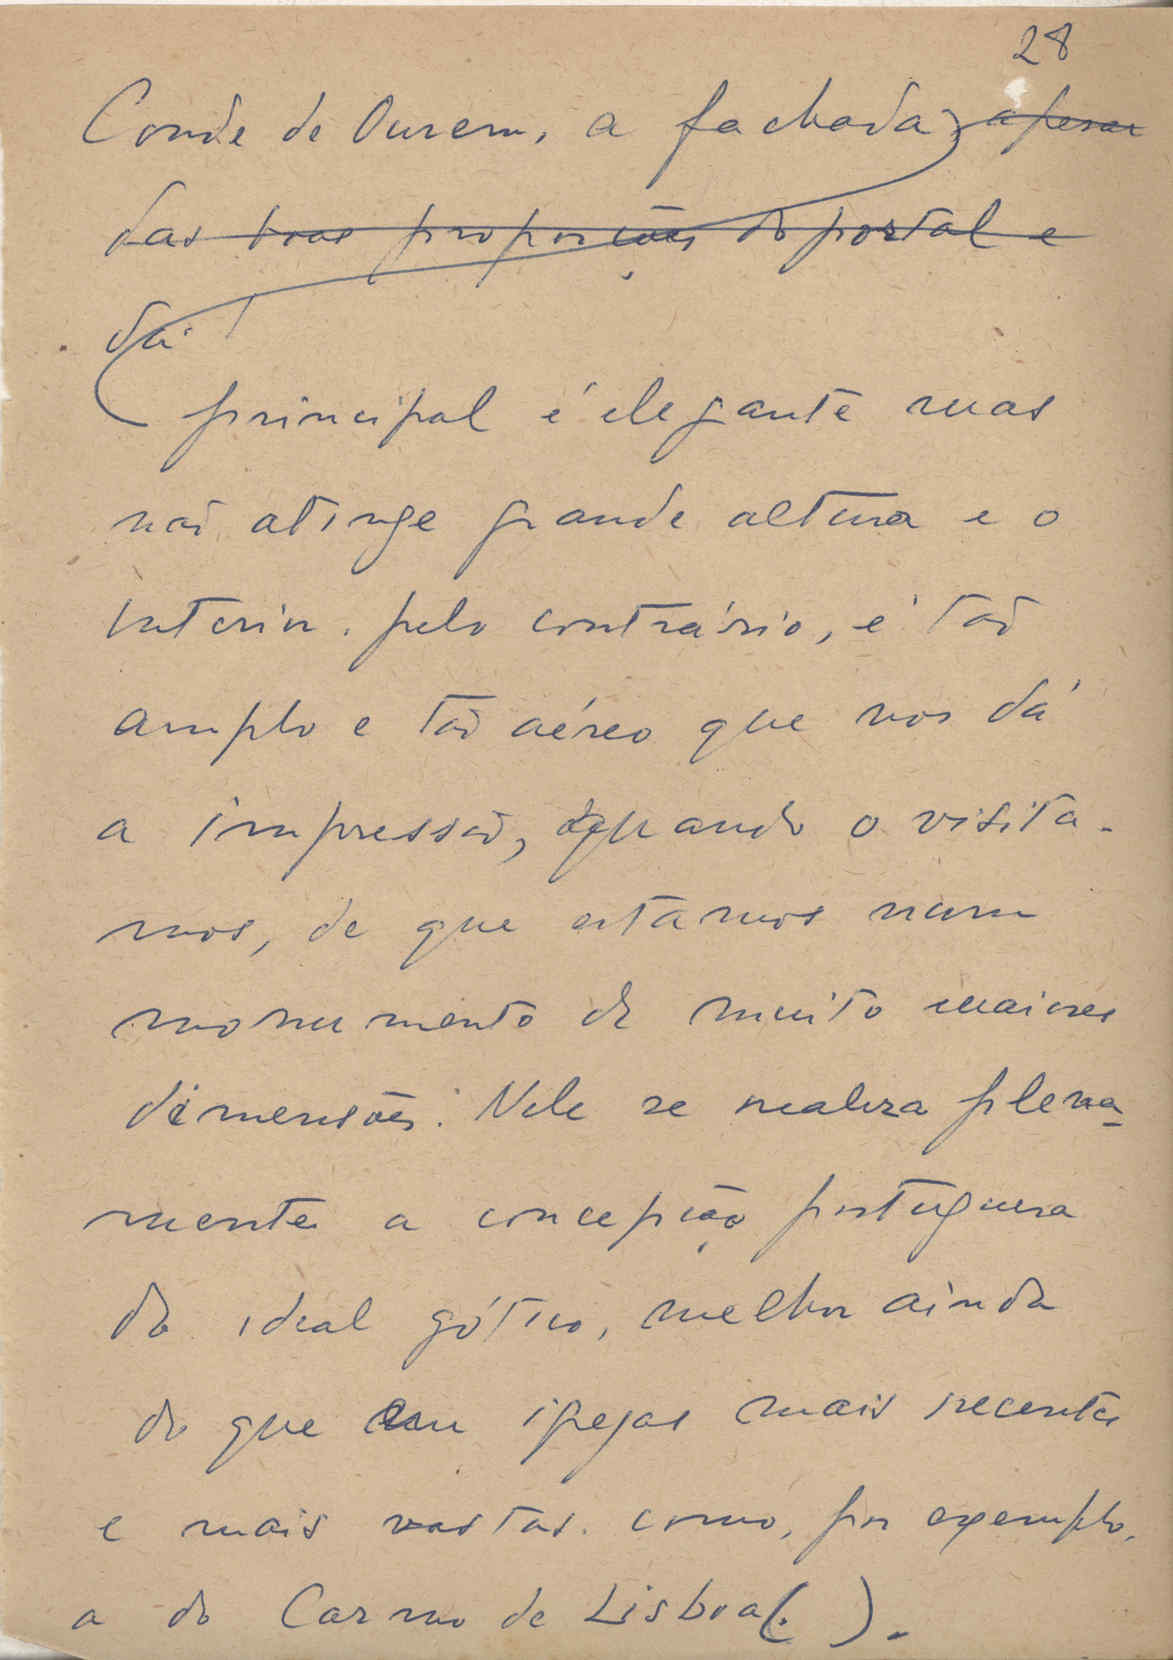 28
Conde de Ourem, a fachada apesar
das boas proporções do portal e
da
principal é elegante mas
não atinge grande altura e o
interior, pelo contrário, é tão
amplo e tão aéreo que nos dá
a impressão, quando o visita-
mos, de que estamos num
monumento de muito maiores
dimensões. Nele se realiza plena-
mente a concepção portuguesa
do ideal gótico, melhor ainda
do que em igrejas mais recentes
e mais vastas. como, por exemplo,
a do Carmo de Lisboa (. ).